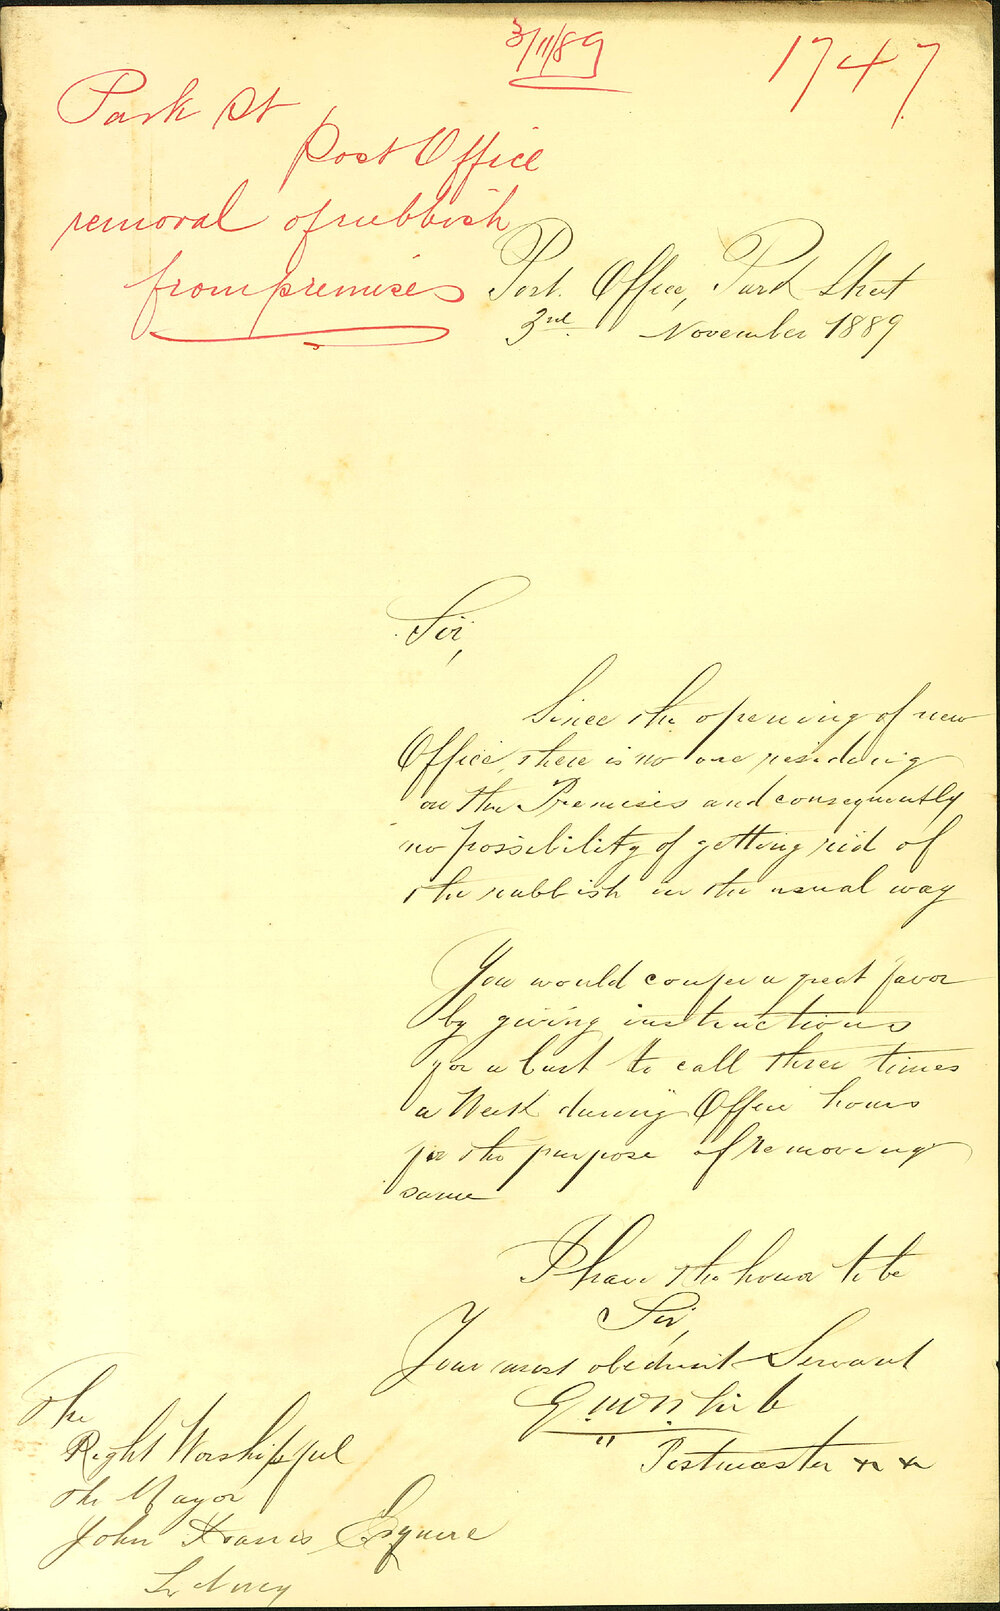 3/11/89
1747
Park St
Post Office
removal of rubbish
from premises
Post Office, Park Street
3rd November 1889
Sir,
Since the opening of new
Office, there is no one residing
on the Premises and consequently
no possibility of getting rid of
the rubbish in the usual way
You would confer a great favor
by giving instructions
for a Cart to call three times
a Week during Office hours
for the purpose of removing
same
I have the honor to be
Sir,
Your most obedient Servant
Postmaster
The
Right Worshipful
The Mayor
John Harris Esquire
Sydney